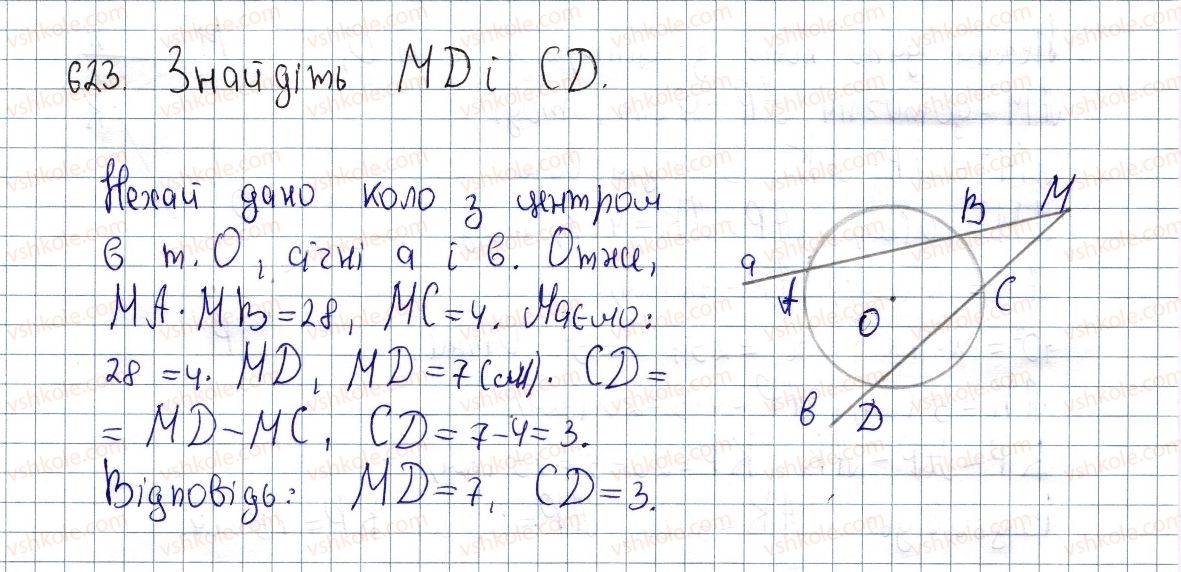 623. Знайдіть MD і CD.
Нехай дано коло з центром
в т. O, січні a і в. Отже,
MA · MB = 28, MC = 4. Маємо:
28 = 4 · MD, MD = 7 (см). CD =
= MD - MC, CD = 7 - 4 = 3.
Відповідь: MD = 7, CD = 3.
M
B
a
A
C
O
в
D
vshkole.com